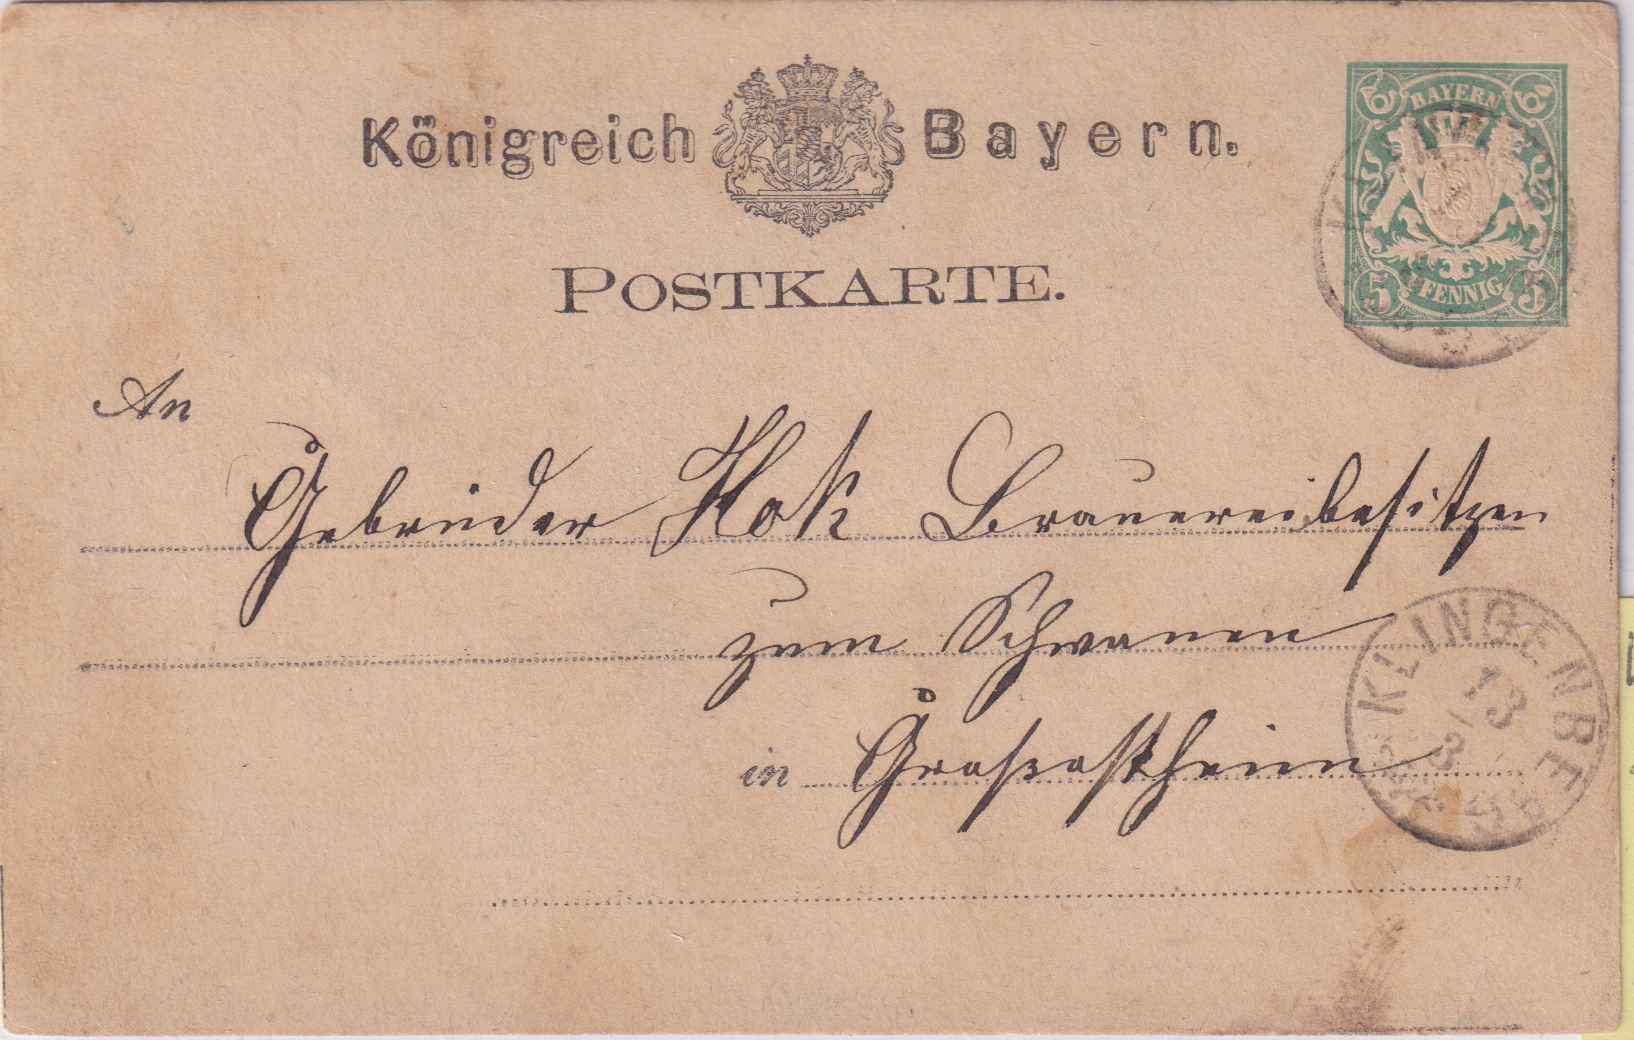 Königreich Bayern.
BAYERN
5 PFENNIG 5
POSTKARTE.
An
Gebrüder Hok Brauereibesitzer
zum Schwanen
in Großostheim
KLINGENBE
13
3